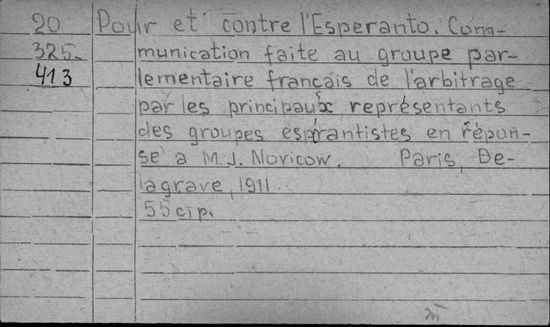 20 Pour et contre l'Esperanto. Com-
325- munication faite au groupe par-
413 lementaire français de l'arbitrage
par les principaux représentants
des groupes espérantistes en répon-
se a M.J. Novicow. Paris, De-
lagrave, 1911
55 стр.